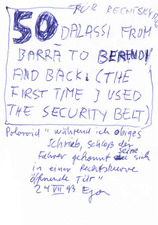 FOR RECHTSKU
50 DALASSI FROM
BARRA TO BERENDI
AND BACK. (THE
FIRST TIME I USED
THE SECURITY BELT)
Polaroid "während ich obiges
schrieb, schloß der
Fahrer gekonnt die sich
in einer Rechtskurve
öffnende Tür"
24 VII 93 Egon